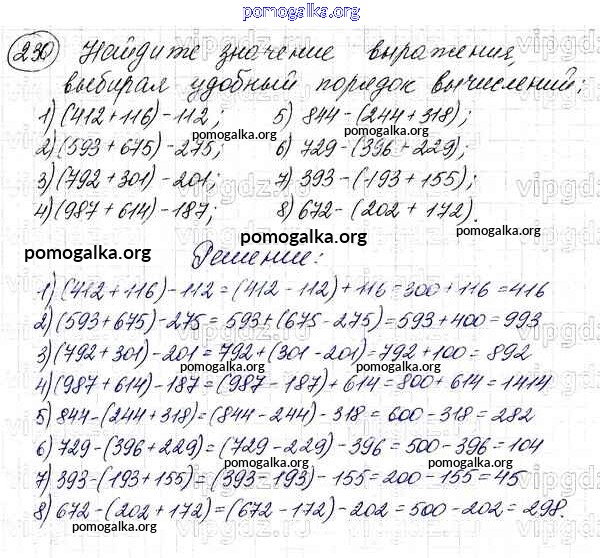 pomogalka.org
230 Найдите значение выражения,
выбирая удобный порядок вычислений:
1) (412+116)-112; 5) 844-(244+318);
pomogalka.org pomogalka.org
2) (593+675)-275; 6) 729-(396+229);
3) (792+301)-201; 7) 393-(193+155);
4) (987+614)-187; 8) 672-(202+172).
pomogalka.org pomogalka.org pomogalka.org
Решение:
1) (412+116)-112=(412-112)+116=300+116=416
2) (593+675)-275=593+(675-275)=593+400=993
3) (792+301)-201=792+(301-201)=792+100=892
4) (987+614)-187=(987-187)+614=800+614=1414
5) 844-(244+318)=(844-244)-318=600-318=282
6) 729-(396+229)=(729-229)-396=500-396=104
pomogalka.org pomogalka.org pomogalka.org
7) 393-(193+155)=(393-193)-155=200-155=45
8) 672-(202+172)=(672-172)-202=500-202=298.
pomogalka.org pomogalka.org